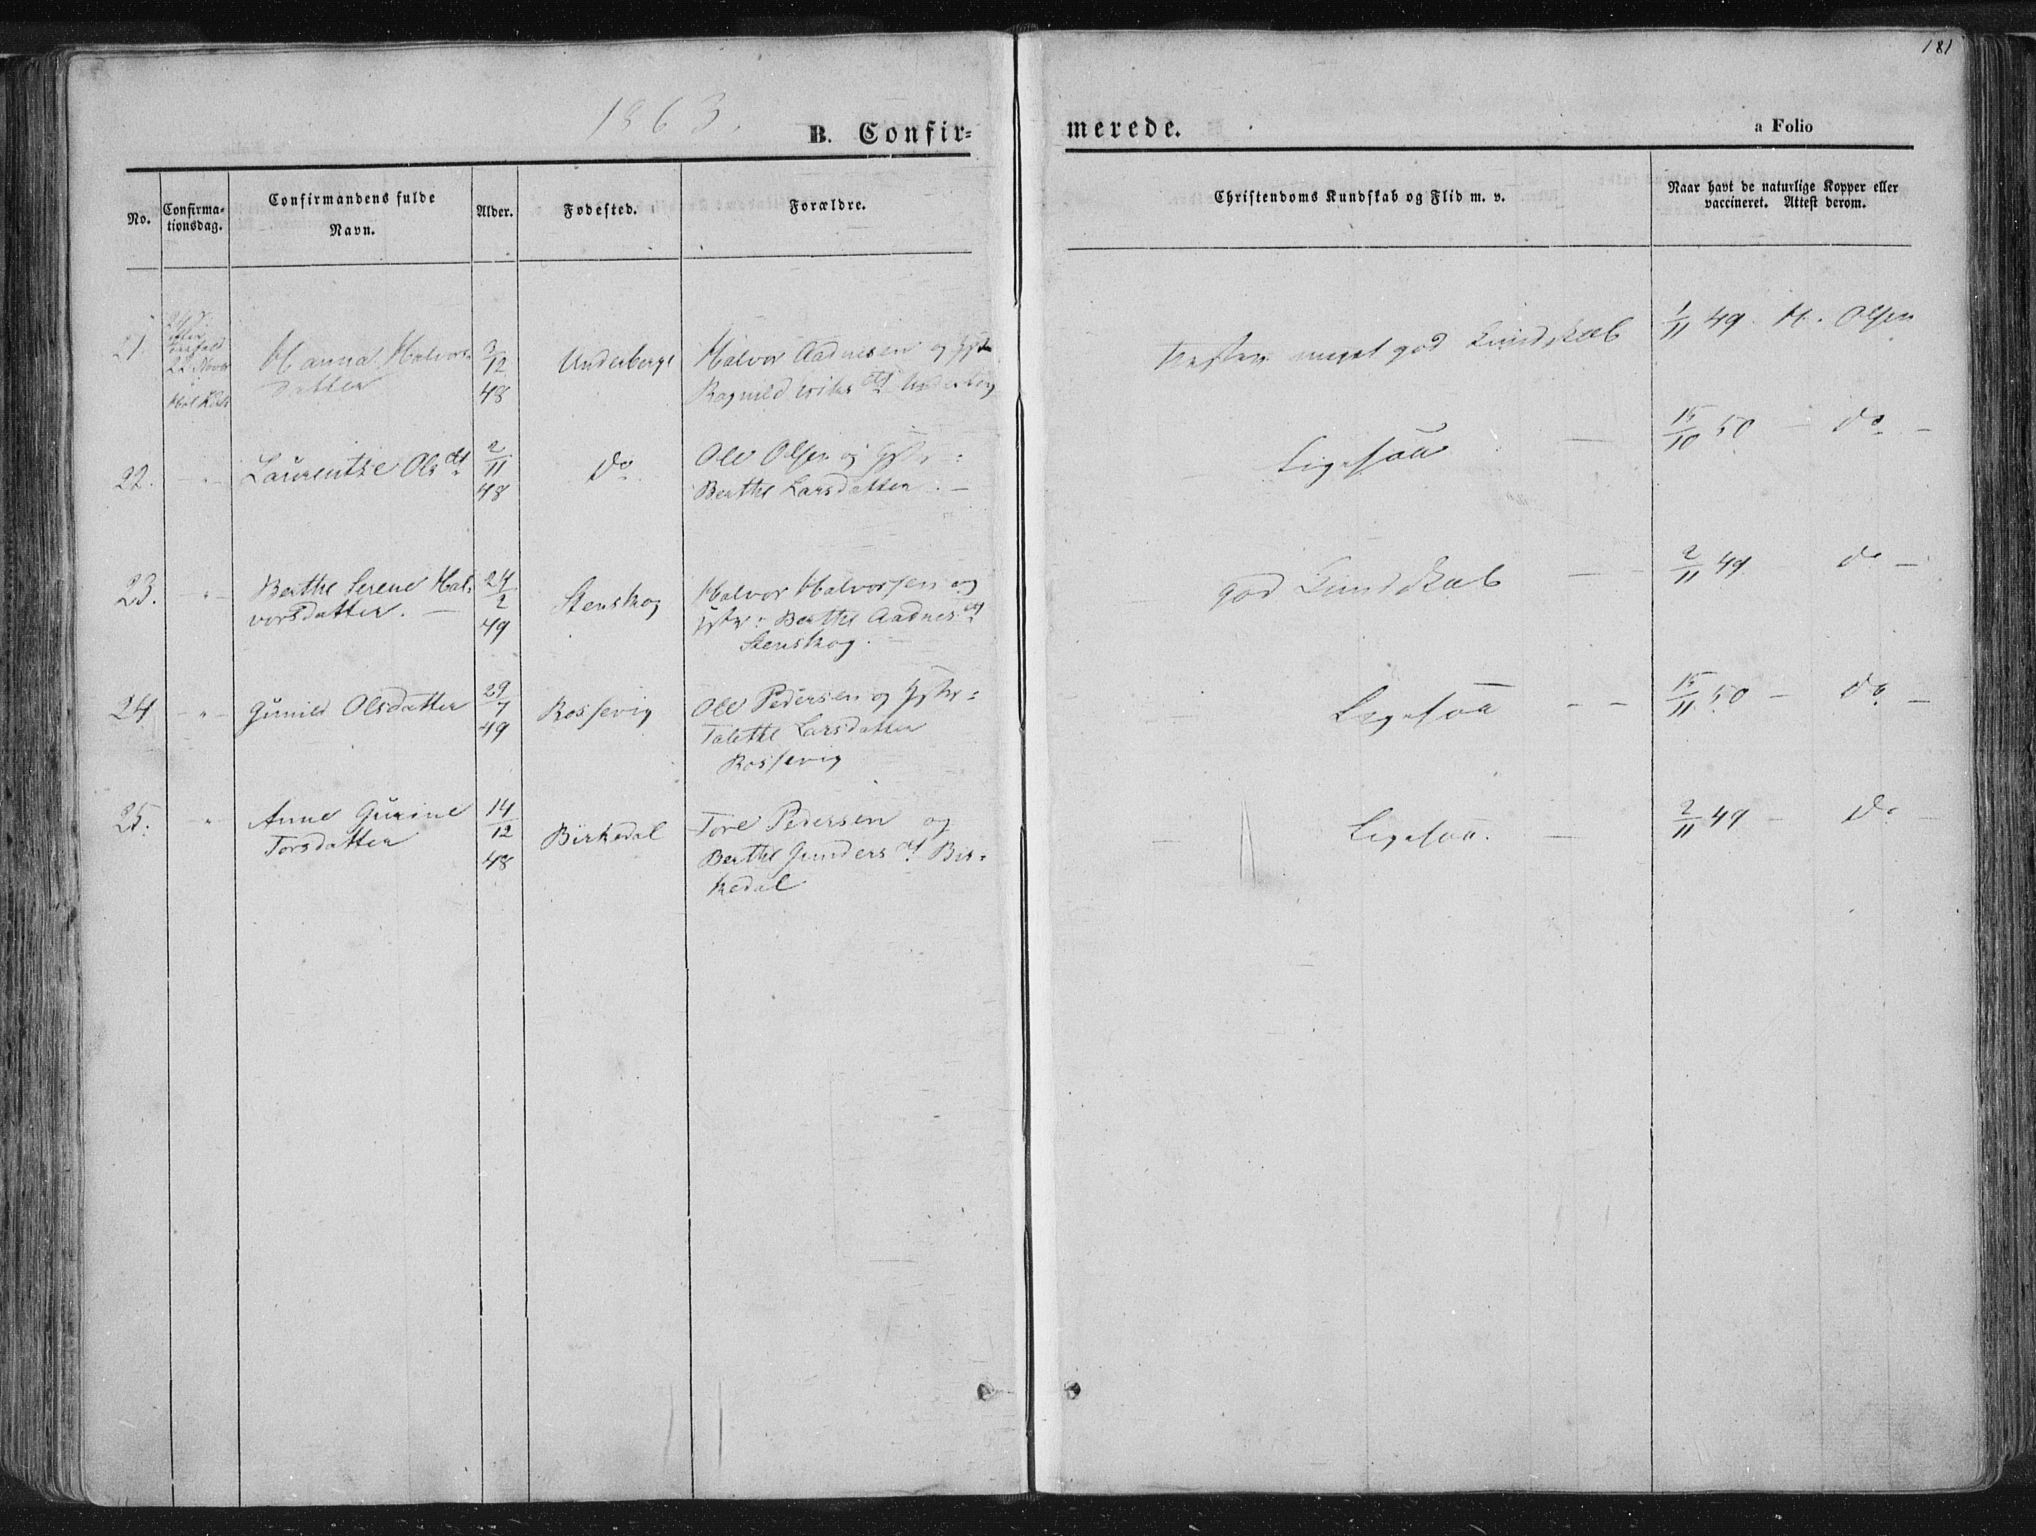 181
1863.
B. Confir=
merede.
a Folio
No.
Confirma-
tionsdag.
Confirmandens fulde
Navn.
Alder.
Fødested.
Forældre.
Christendoms Kundskab og Flid m. v.
Naar havt de naturlige Kopper eller
vaccineret. Attest derom.
21.
22 Novbr
Hanna Halvors
datter
2/12
48
Underberge
Halvor Aadnesen og Hstr
Ragnild dt Underberg
meget god Kundskab
1/11 49. H. Olsen
22.
Laurentze Olsdt
2/11
48
Do
Ole Olsen og Hstr:
Berthe Larsdatter. —
Ligesaa —
15/10 50 — Do —
23.
Berthe Serene Hal-
vorsdatter. —
24/2
49
Stenskog
Halvor Halvorsen og
Hstr: Berthe Aadnesdt
Stenskog. —
god Kundskab — —
2/11 49. Do —
24
Gunild Olsdatter
29/7
49
Rossevig
Ole Pedersen og Hstr:
Talethe Larsdatter
Rossevig
Ligesaa — —
15/11 50 — Do —
25.
Anne Gurine
Torsdatter
14/12
48
Birkedal
Tore Pedersen og
Berthe Gundersdt Bir=
kedal
Ligesaa. —
2/11 49 — Do —